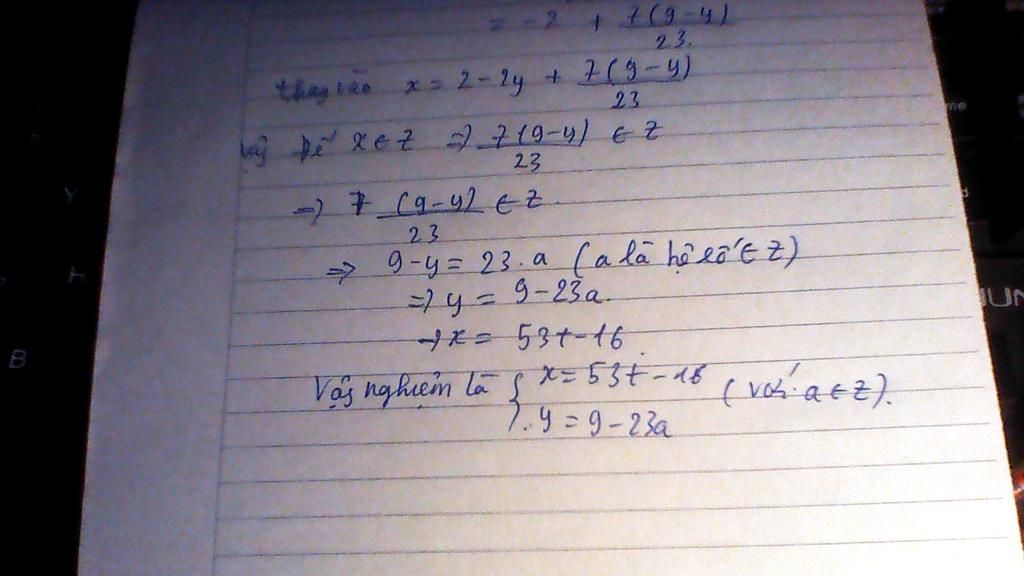 = -2 + 7(9-y)/23.
thay vào x = 2 - 2y + 7(9-y)/23
Vậy Để x ∈ Z => 7(9-y)/23 ∈ Z
=> 7 (9-y)/23 ∈ Z.
=> 9-y = 23.a (a là hệ số ∈ Z)
=> y = 9-23a.
→ x = 53t-16.
Vậy nghiệm là { x = 53t-16 (với a ∈ Z).
y = 9-23a
Y
H
B
me
d
JUN